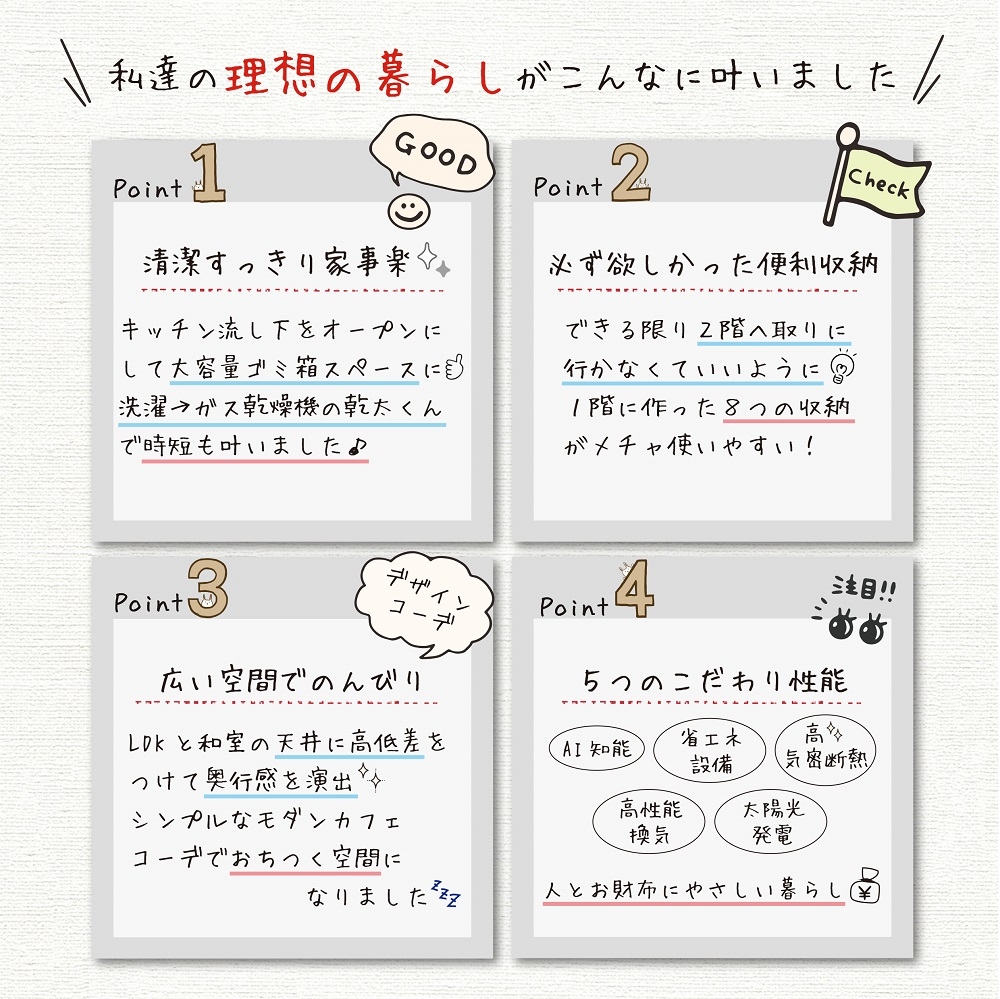 私達の理想の暮らしがこんなに叶いました
Point 1
GOOD
清潔すっきり家事楽
キッチン流し下をオープンに
して大容量ゴミ箱スペースに
洗濯→ガス乾燥機の乾太くん
で時短も叶いました♪
Point 2
Check
必ず欲しかった便利収納
できる限り2階へ取りに
行かなくていいように
1階に作った8つの収納
がメチャ使いやすい!
Point 3
デザイン
コーデ
広い空間でのんびり
LDKと和室の天井に高低差を
つけて奥行感を演出
シンプルなモダンカフェ
コーデでおちつく空間に
なりました zzz
Point 4
注目!!
5つのこだわり性能
AI知能
省エネ
設備
高
気密断熱
高性能
換気
太陽光
発電
人とお財布にやさしい暮らし
¥